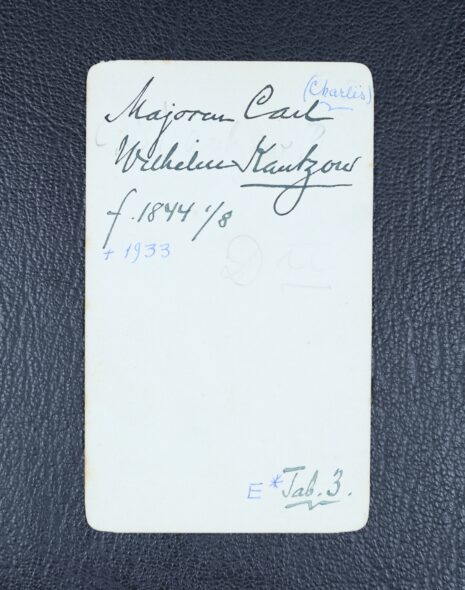 (Charlis)
Majoren Carl
Wilhelm Kantzow
f. 1844 1/8
+ 1933
E* Tab. 3.